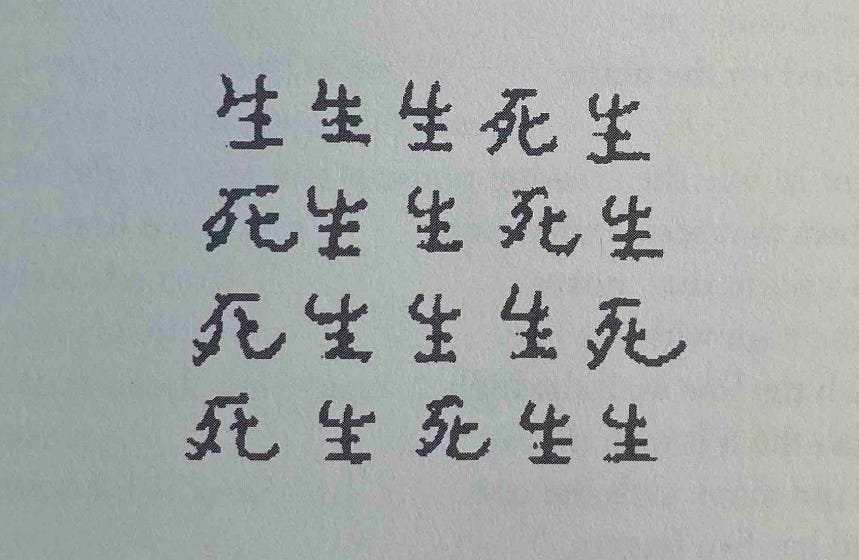 生生生死生
死生生死生
死生生生死
死生死生生